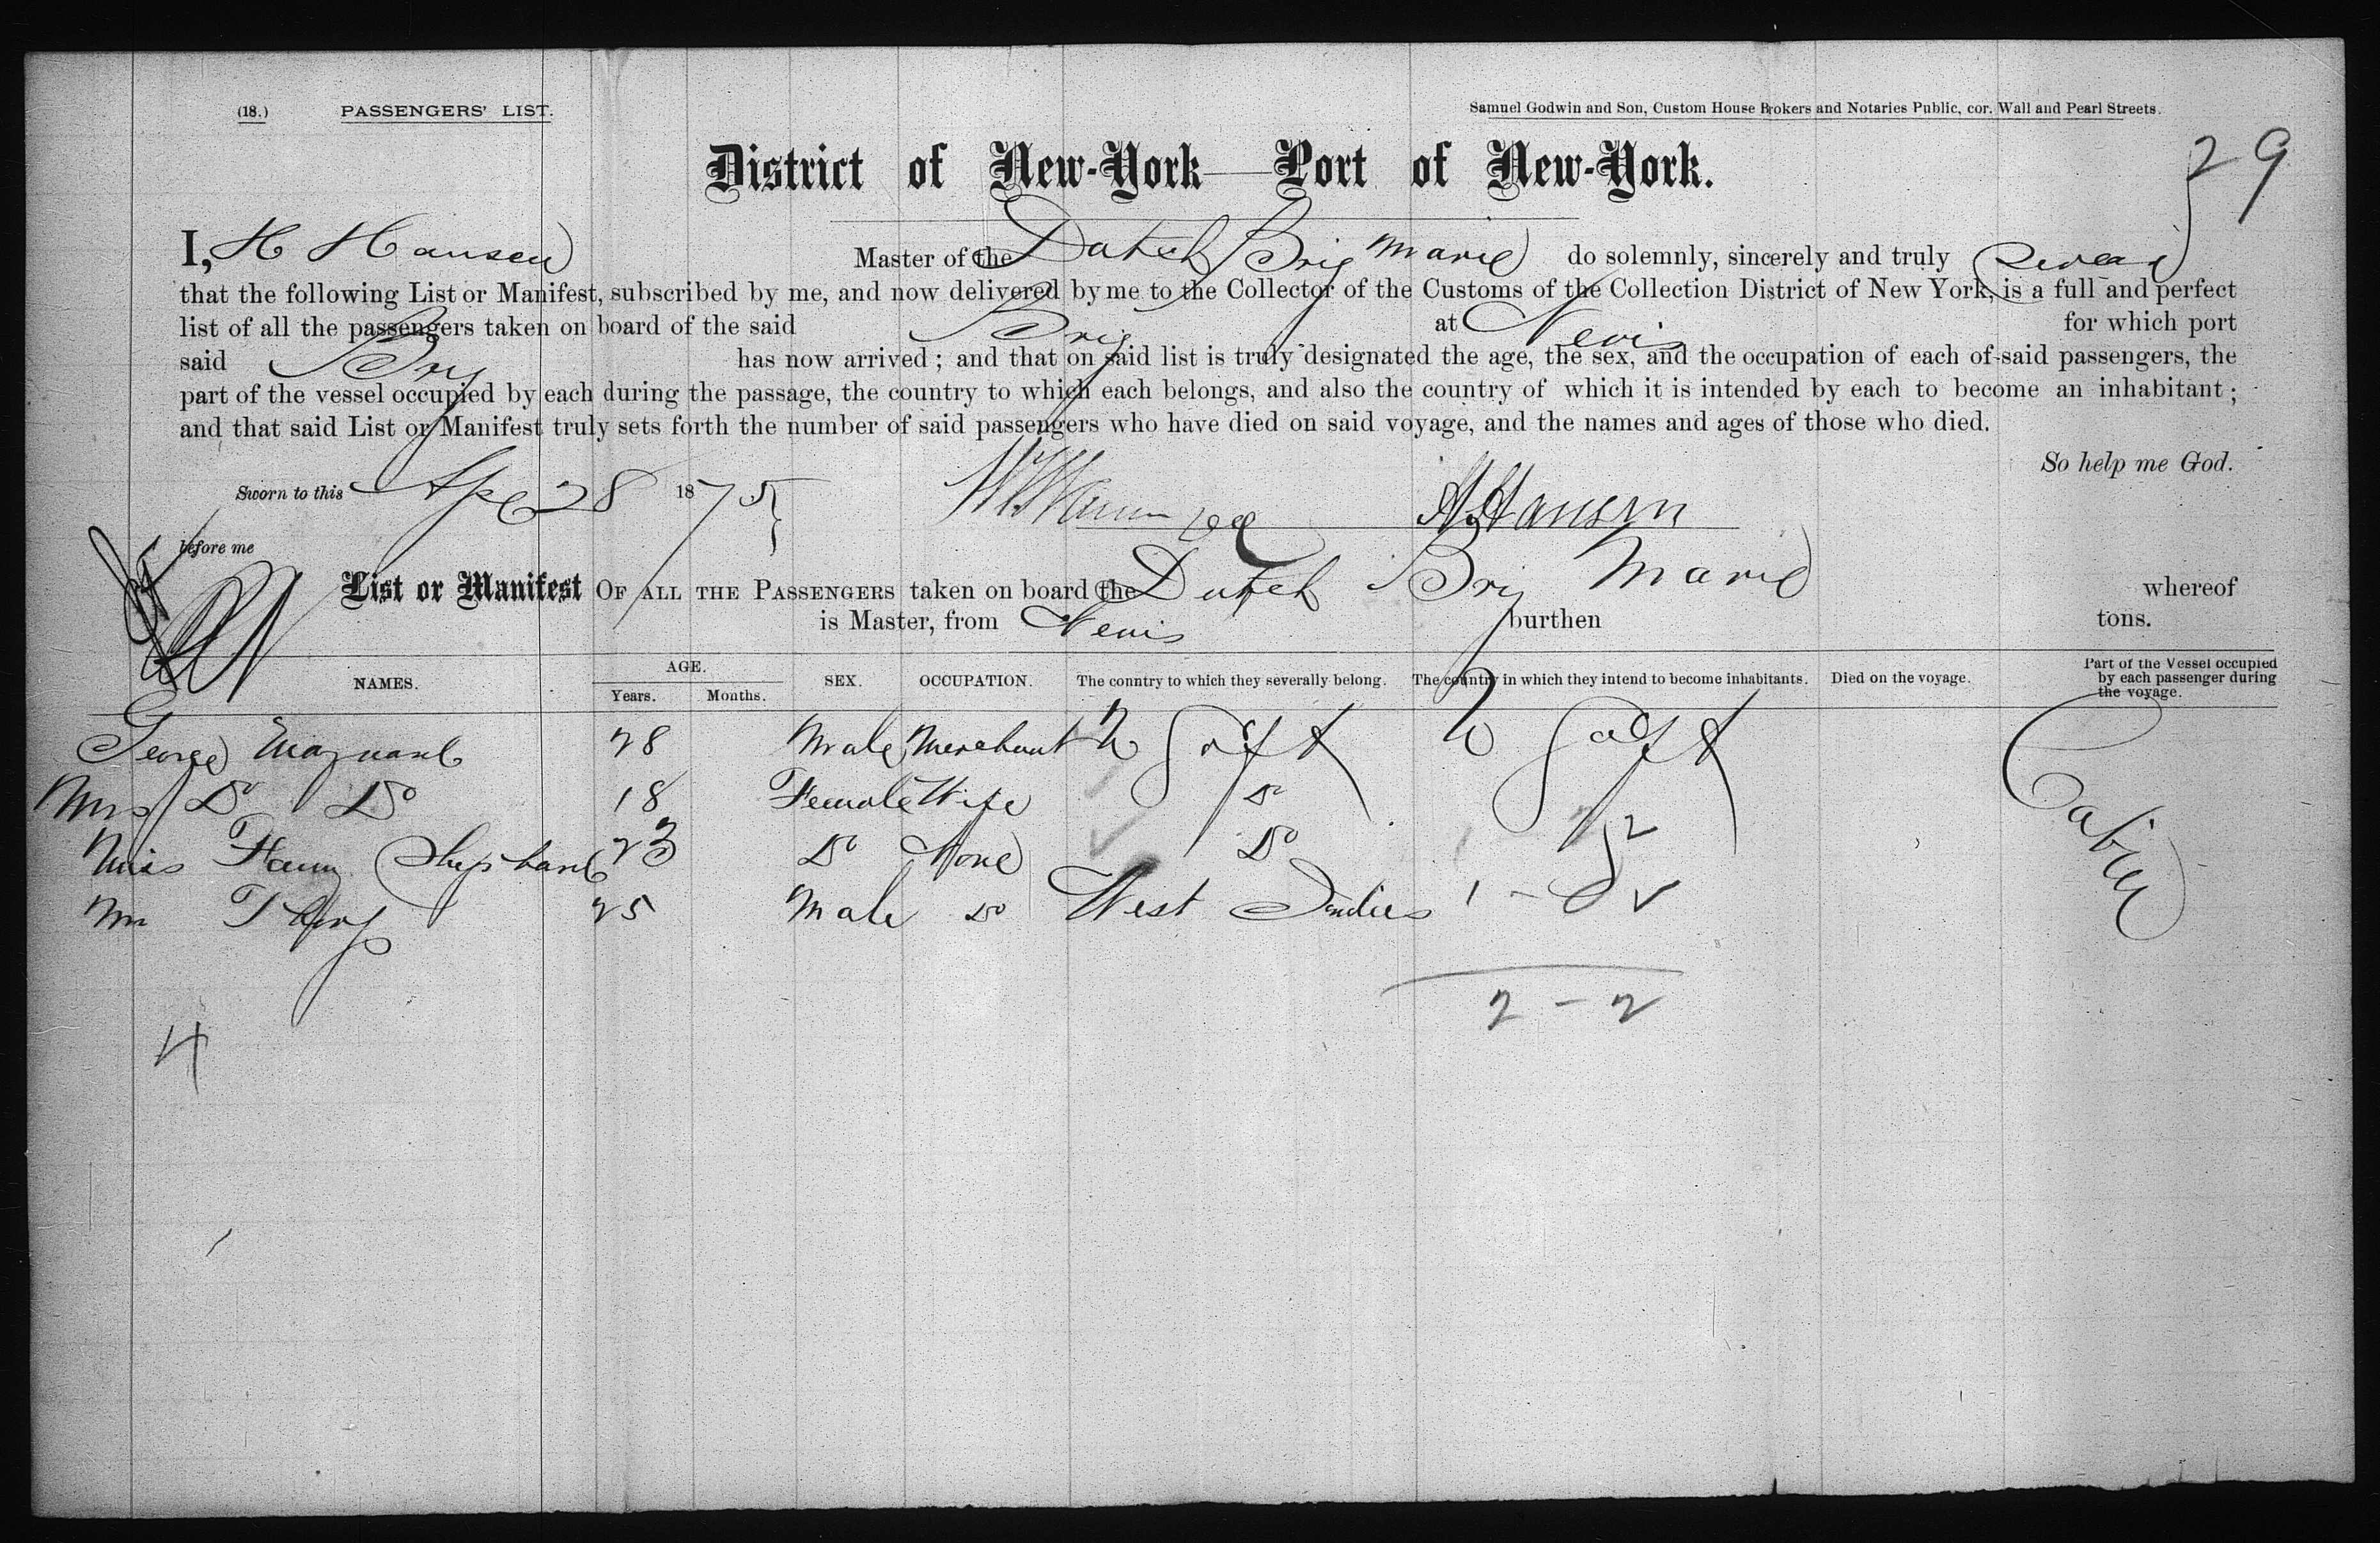 (18.) PASSENGERS' LIST.
Samuel Godwin and Son, Custom House Brokers and Notaries Public, cor. Wall and Pearl Streets.
29
District of New-York—Port of New-York.
I, H Hansen Master of the Dutch Brig Marie do solemnly, sincerely and truly swear
that the following List or Manifest, subscribed by me, and now delivered by me to the Collector of the Customs of the Collection District of New York, is a full and perfect
list of all the passengers taken on board of the said Brig at Nevis for which port
said Brig has now arrived; and that on said list is truly designated the age, the sex, and the occupation of each of said passengers, the
part of the vessel occupied by each during the passage, the country to which each belongs, and also the country of which it is intended by each to become an inhabitant;
and that said List or Manifest truly sets forth the number of said passengers who have died on said voyage, and the names and ages of those who died.
So help me God.
Sworn to this Apl 28 1875
H. Hansen
before me
List or Manifest OF ALL THE PASSENGERS taken on board the Dutch Brig Marie whereof
is Master, from Nevis burthen tons.
NAMES. AGE. Years. Months. SEX. OCCUPATION. The country to which they severally belong. The country in which they intend to become inhabitants. Died on the voyage. Part of the Vessel occupied by each passenger during the voyage.
George Maynard 28 Male Merchant
Mrs Do Do 18 Female Wife Do
Miss Fanny Shephard 23 Do None Do 2
Mr 25 Male Do West Indies 1 -
Cabin
2 - 2
4